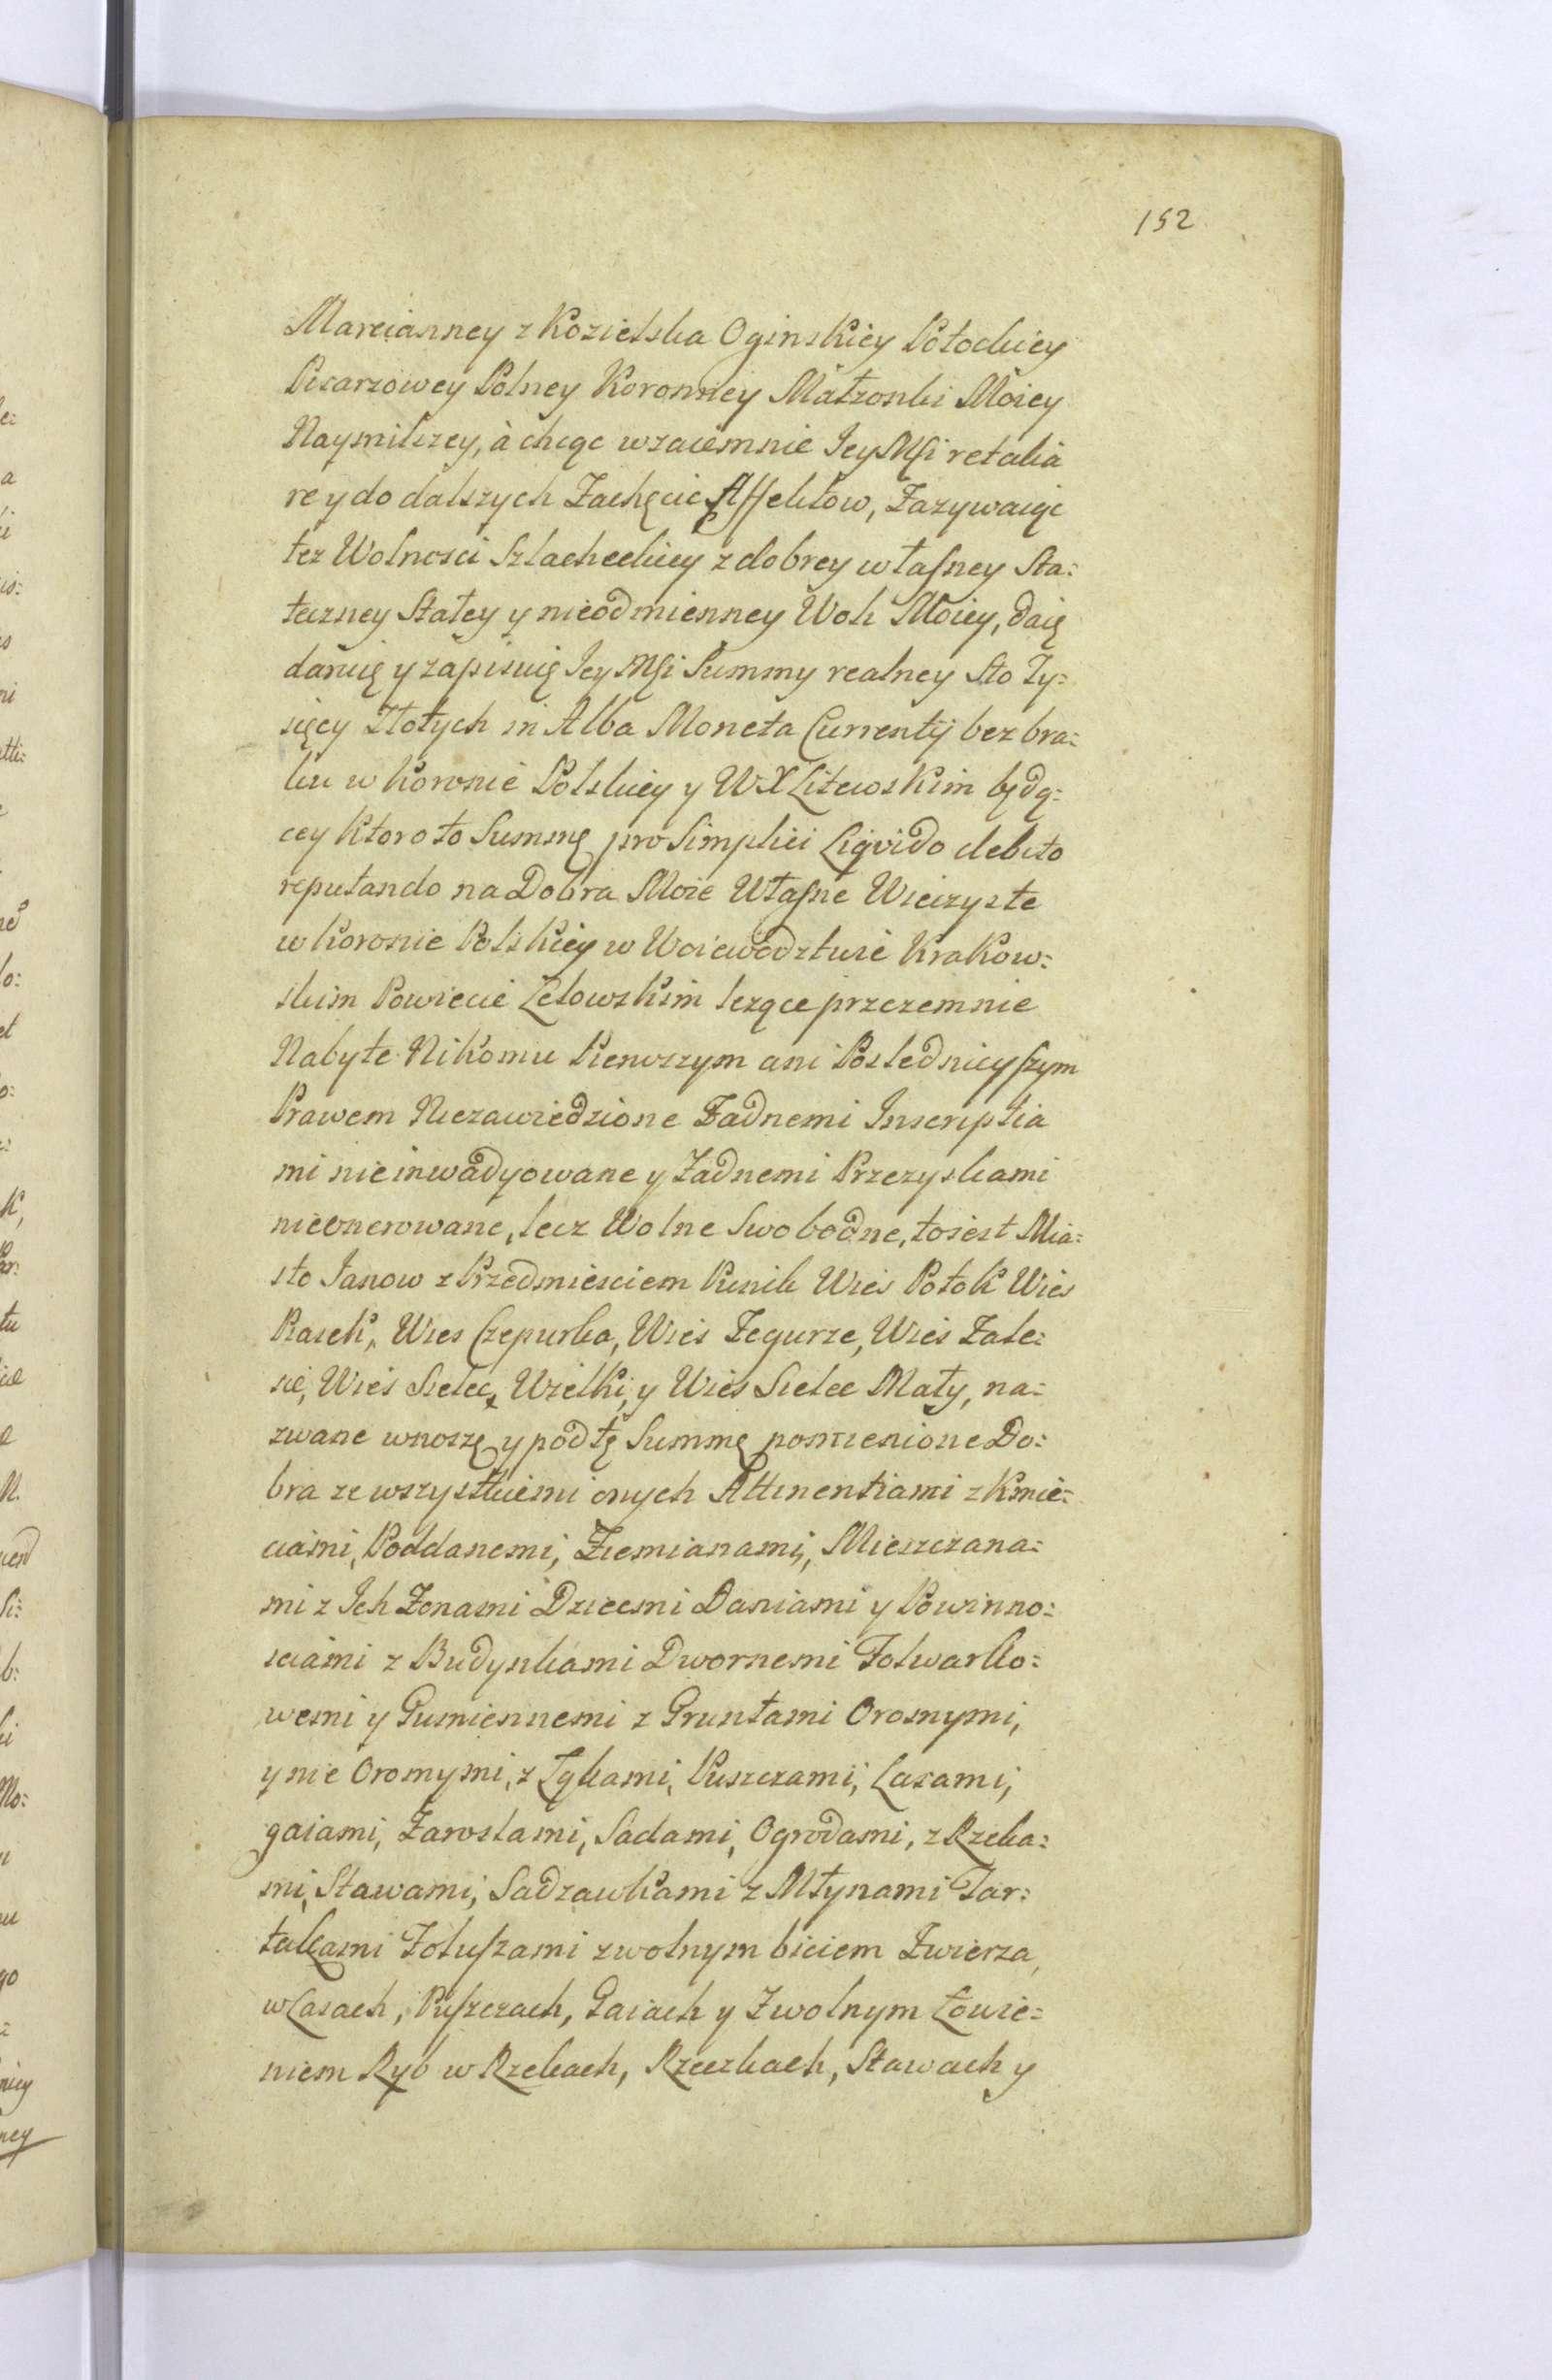 152
Marcianney z Kozielska Oginskiey Potockiey
Pisarzowey Polney Koronney Małzonki Moiey
Naymilszey, à chcąc wzaiemnie Jey Mſi retalia
re y do dalszych Zachęcic Affektow, Zazywaiąc
tez Wolnosci Szlacheckiey z dobrey właſney Sta:
teczney Stałey y nieodmienney Woli Moiey, daię
daruię y zapisuię Jey Mſi Summy realney Sto Ty:
sięcy Złotych in Alba Moneta Currenty bez bra:
ku w Koronie Polskiey y WX Litewskim będą:
cey ktoro to Summę pro Simplici Liqvido debito
reputando na Dobra Moie Właſne Wieczyste
w Koronie Polskiey w Woiewodztwie Krakow:
skim Powiecie Lelowskim lezące przezemnie
Nabyte Nikomu Pierwszym ani Posledniey ſzym
Prawem Niezawiedzione Zadnemi Inscriptia
mi nieinwadyowane y Zadnemi Przezyskami
nieonerowane, lecz Wolne Swobodne, to iest Mia:
sto Janow z Przedmiesciem Ponik Wies Potok Wies
Piasek, Wies Czepurka, Wies Zegurze, Wies Zale:
sie, Wies Sielec Wielki, y Wies Sielec Mały, na:
zwane wnoszę y pod tę Summę pomienione Do:
bra ze wszystkiemi onych Attinentiami z Kmie:
ciami, Poddanemi, Ziemianami, Mieszczana:
mi z Ich Zonami Dziecmi Daniami y Powinno:
sciami z Budynkami Dwornemi Folwarko:
wemi y Gumiennemi z Gruntami Oromymi,
y nie Oromymi, z Łąkami, Puszczami, Lasami,
gaiami, Zaroslami, Sadami, Ogrodami, z Rzeka:
mi, Stawami, Sadzawkami z Młynami Tar:
takami Foluſzami z wolnym biciem Zwierza,
w Lasach, Puſzczach, Gaiach y Z wolnym Łowie:
niem Ryb w Rzekach, Rzeczkach, Stawach y